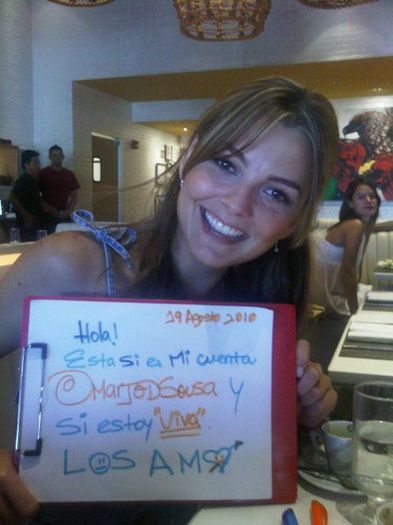 19 Agosto 2010
Hola!
Esta si es Mi cuenta
@MarJoDSousa y
Si estoy "Viva".
LOS AMO